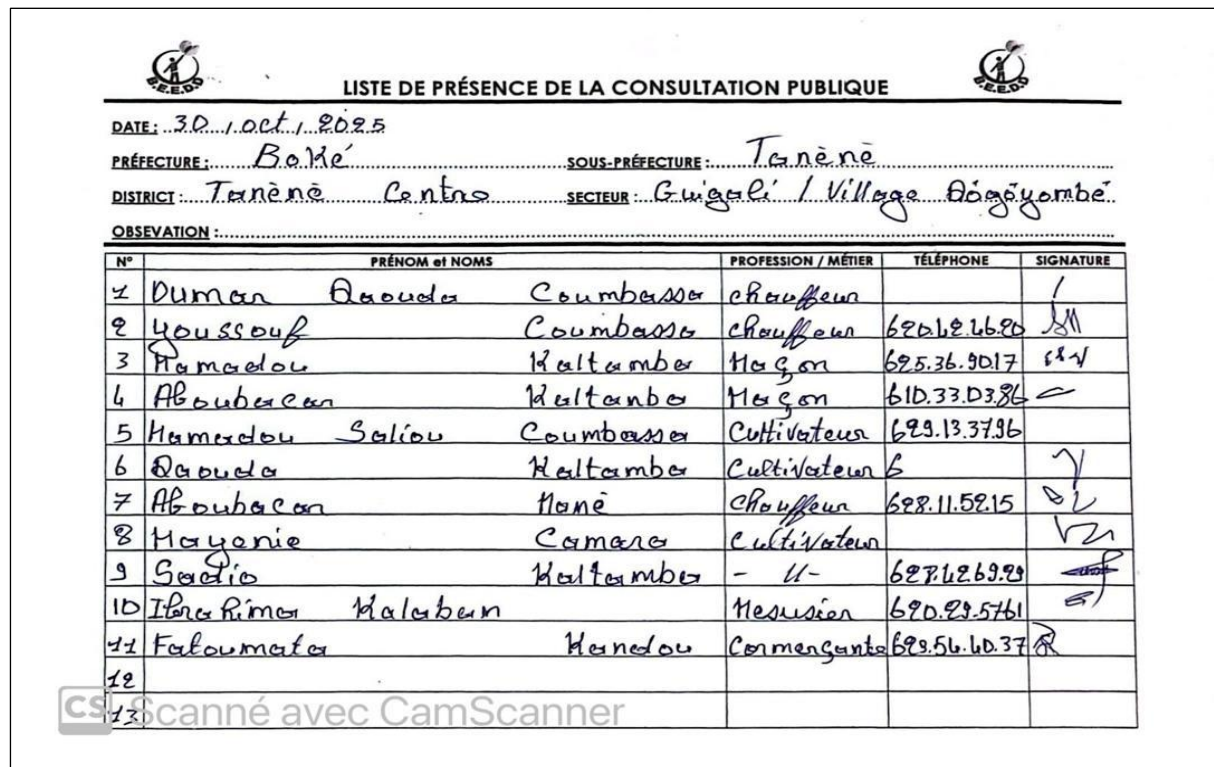 B.E.E.D.D
B.E.E.D.D
LISTE DE PRÉSENCE DE LA CONSULTATION PUBLIQUE
DATE : 30 / oct / 2025
PRÉFECTURE : Boké SOUS-PRÉFECTURE : Tanènè
DISTRICT : Tanènè Centre SECTEUR : Guigali / Village Dögöyombé
OBSEVATION :
N° PRÉNOM et NOMS PROFESSION / MÉTIER TÉLÉPHONE SIGNATURE
1 Oumar Daouda Coumbassa chauffeur
2 Youssouf Coumbassa chauffeur 620.42.46.20
3 Mamadou Kaltamba Maçon 625.36.9017
4 Aboubacar Kaltanba Maçon 610.33.03.86
5 Mamadou Saliou Coumbassa Cultivateur 629.13.37.96
6 Daouda Kaltamba Cultivateur 6
7 Aboubacar Mané Chauffeur 628.11.52.15
8 Camara Cultivateur
9 Sadio Kaltamba - 11-
10 Ibrahima Kalaban 620.29.5761
11 Fatoumata Mandou Commerçante 629.54.40.37
12
13
CS Scanné avec CamScanner